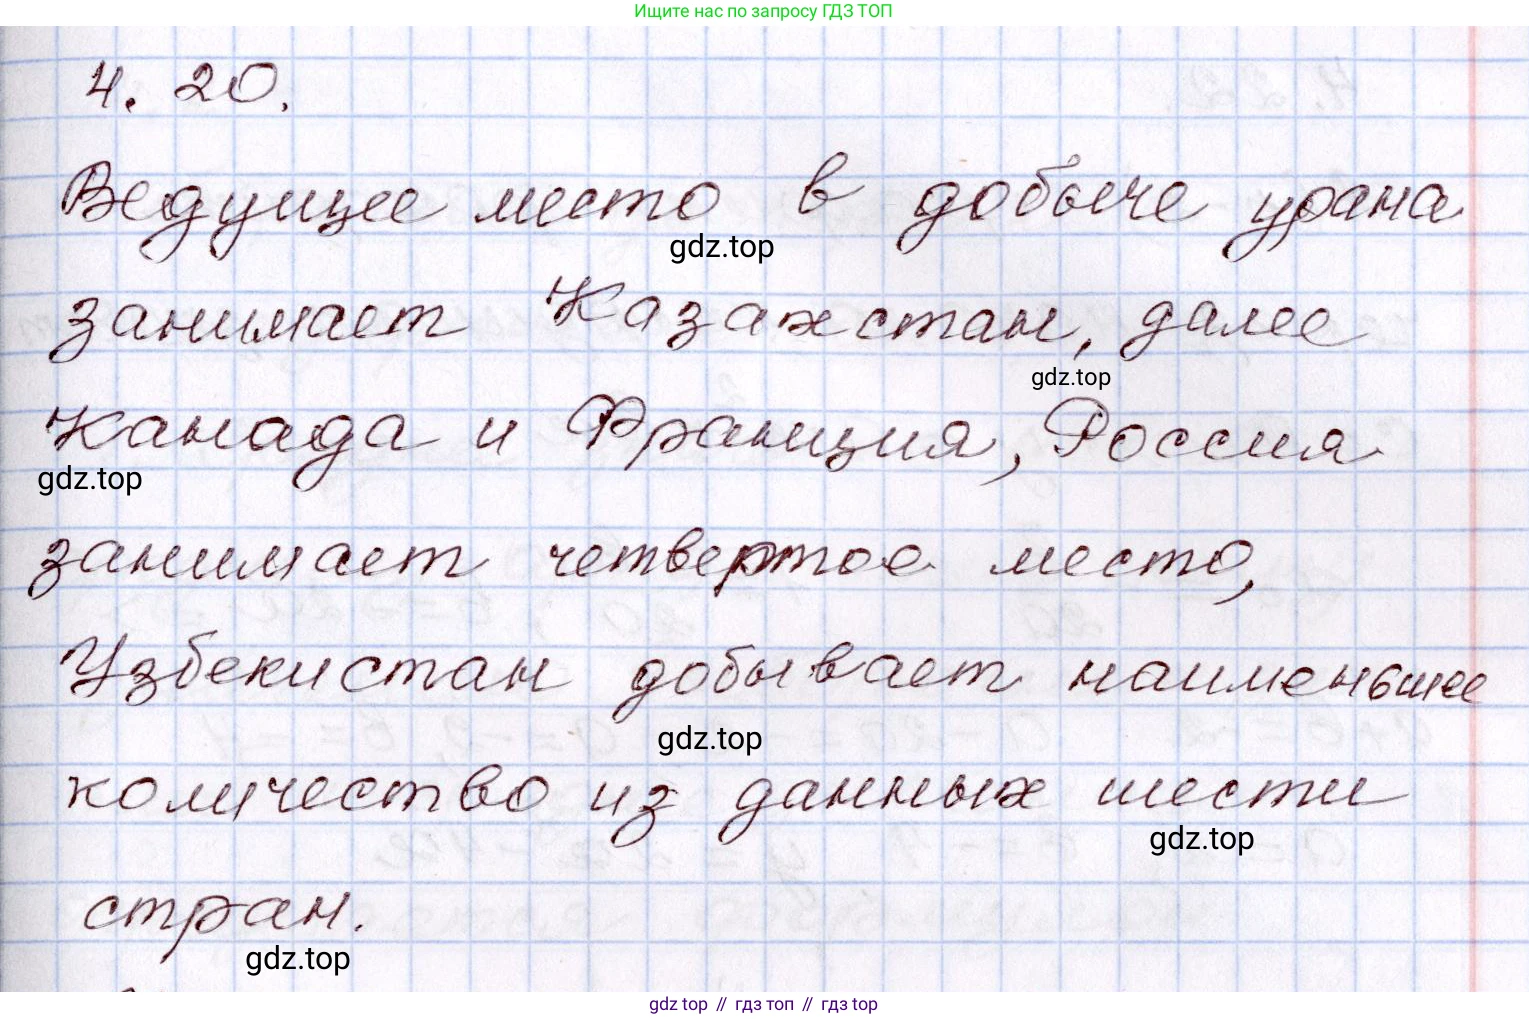 Ищите нас по запросу ГДЗ ТОП
4. 20.
Ведущее место в добыче урана
gdz.top
занимает Казахстан, далее
gdz.top
Канада и Франция, Россия
gdz.top
занимает четвертое место,
Узбекистан добывает наименьшее
gdz.top
количество из данных шести
gdz.top
стран.
gdz.top
gdz top // гдз топ // гдз top